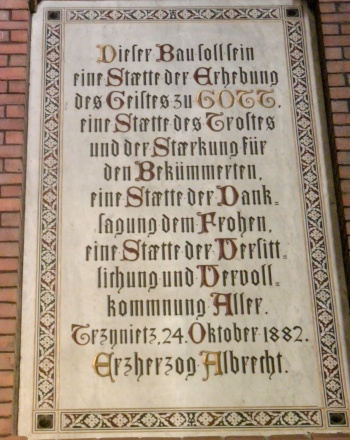 Dieser Bau soll sein
eine Stætte der Erhebung
des Geistes zu GOTT,
eine Stætte des Trostes
und der Stærkung für
den Bekümmerten,
eine Stætte der Dank-
sagung dem Frohen,
eine Stætte der Versitt-
lichung und Vervoll-
kommnung Aller.
Trzynietz, 24. Oktober 1882.
Erzherzog Albrecht.